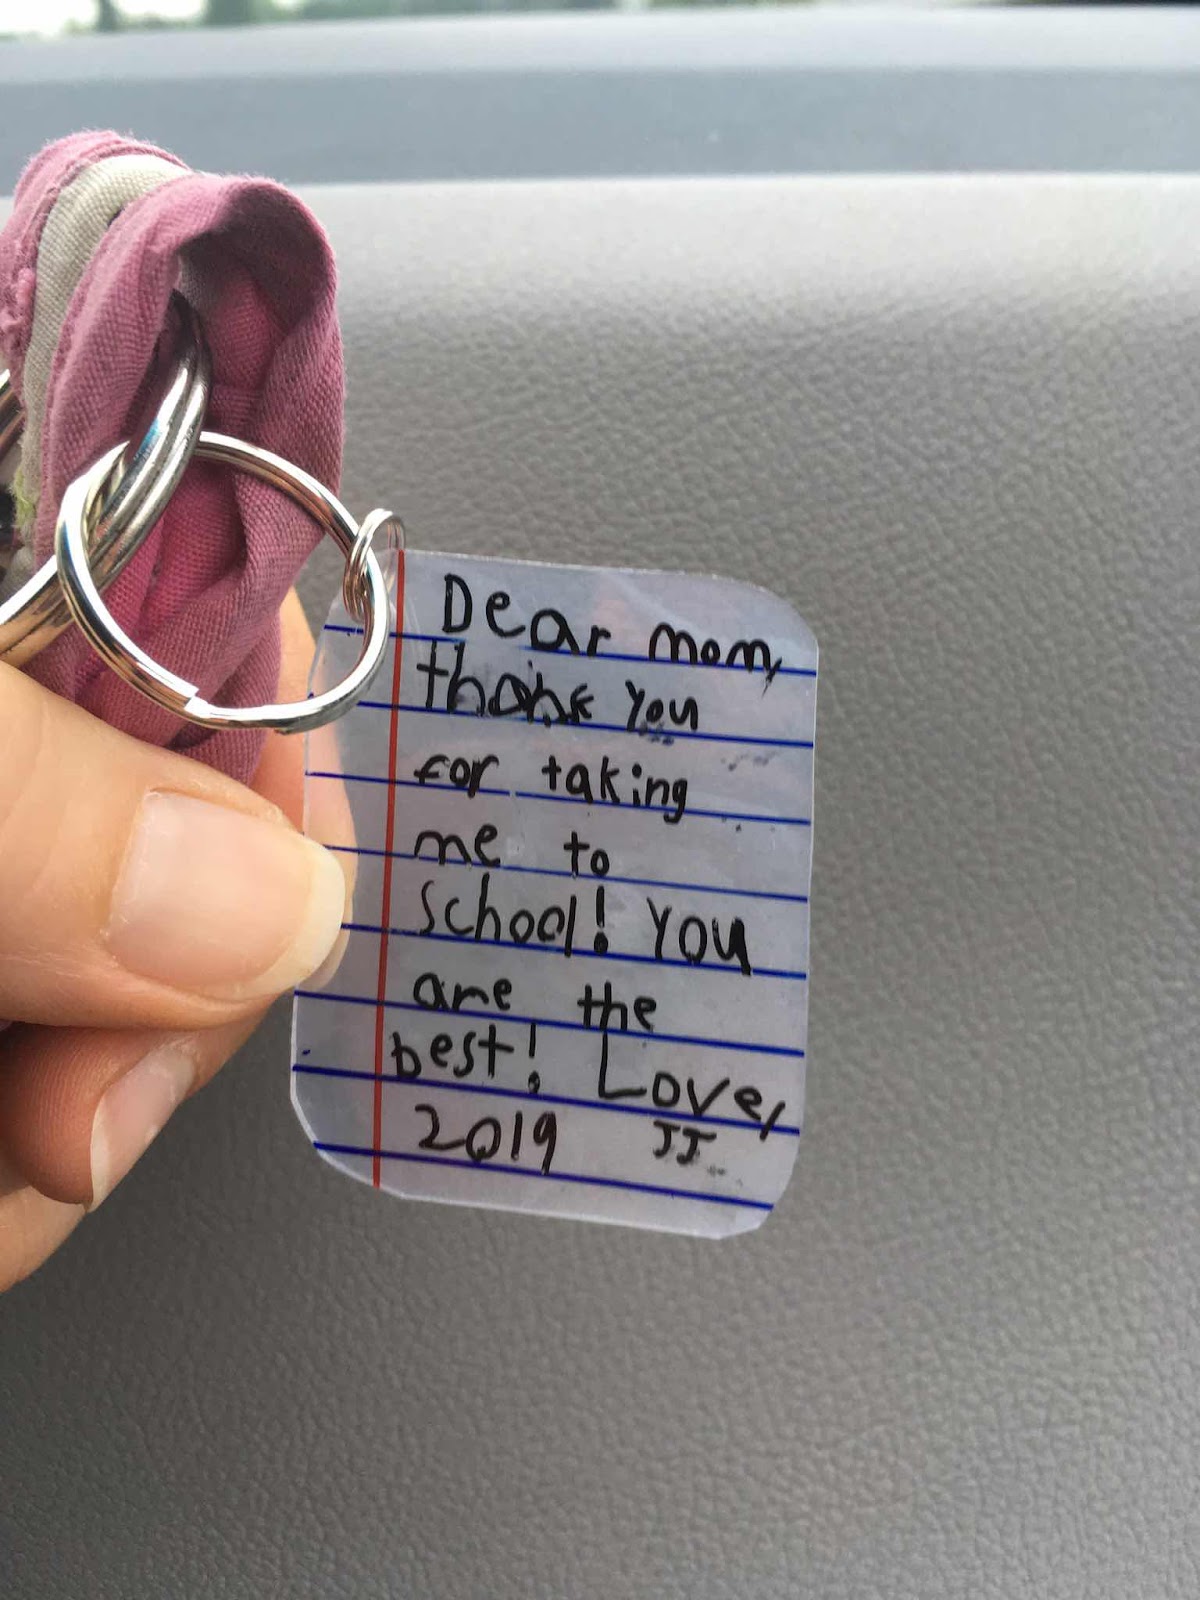 Dear mom,
thank you
for taking
me to
school! You
are the
best! Love,
2019 JJ